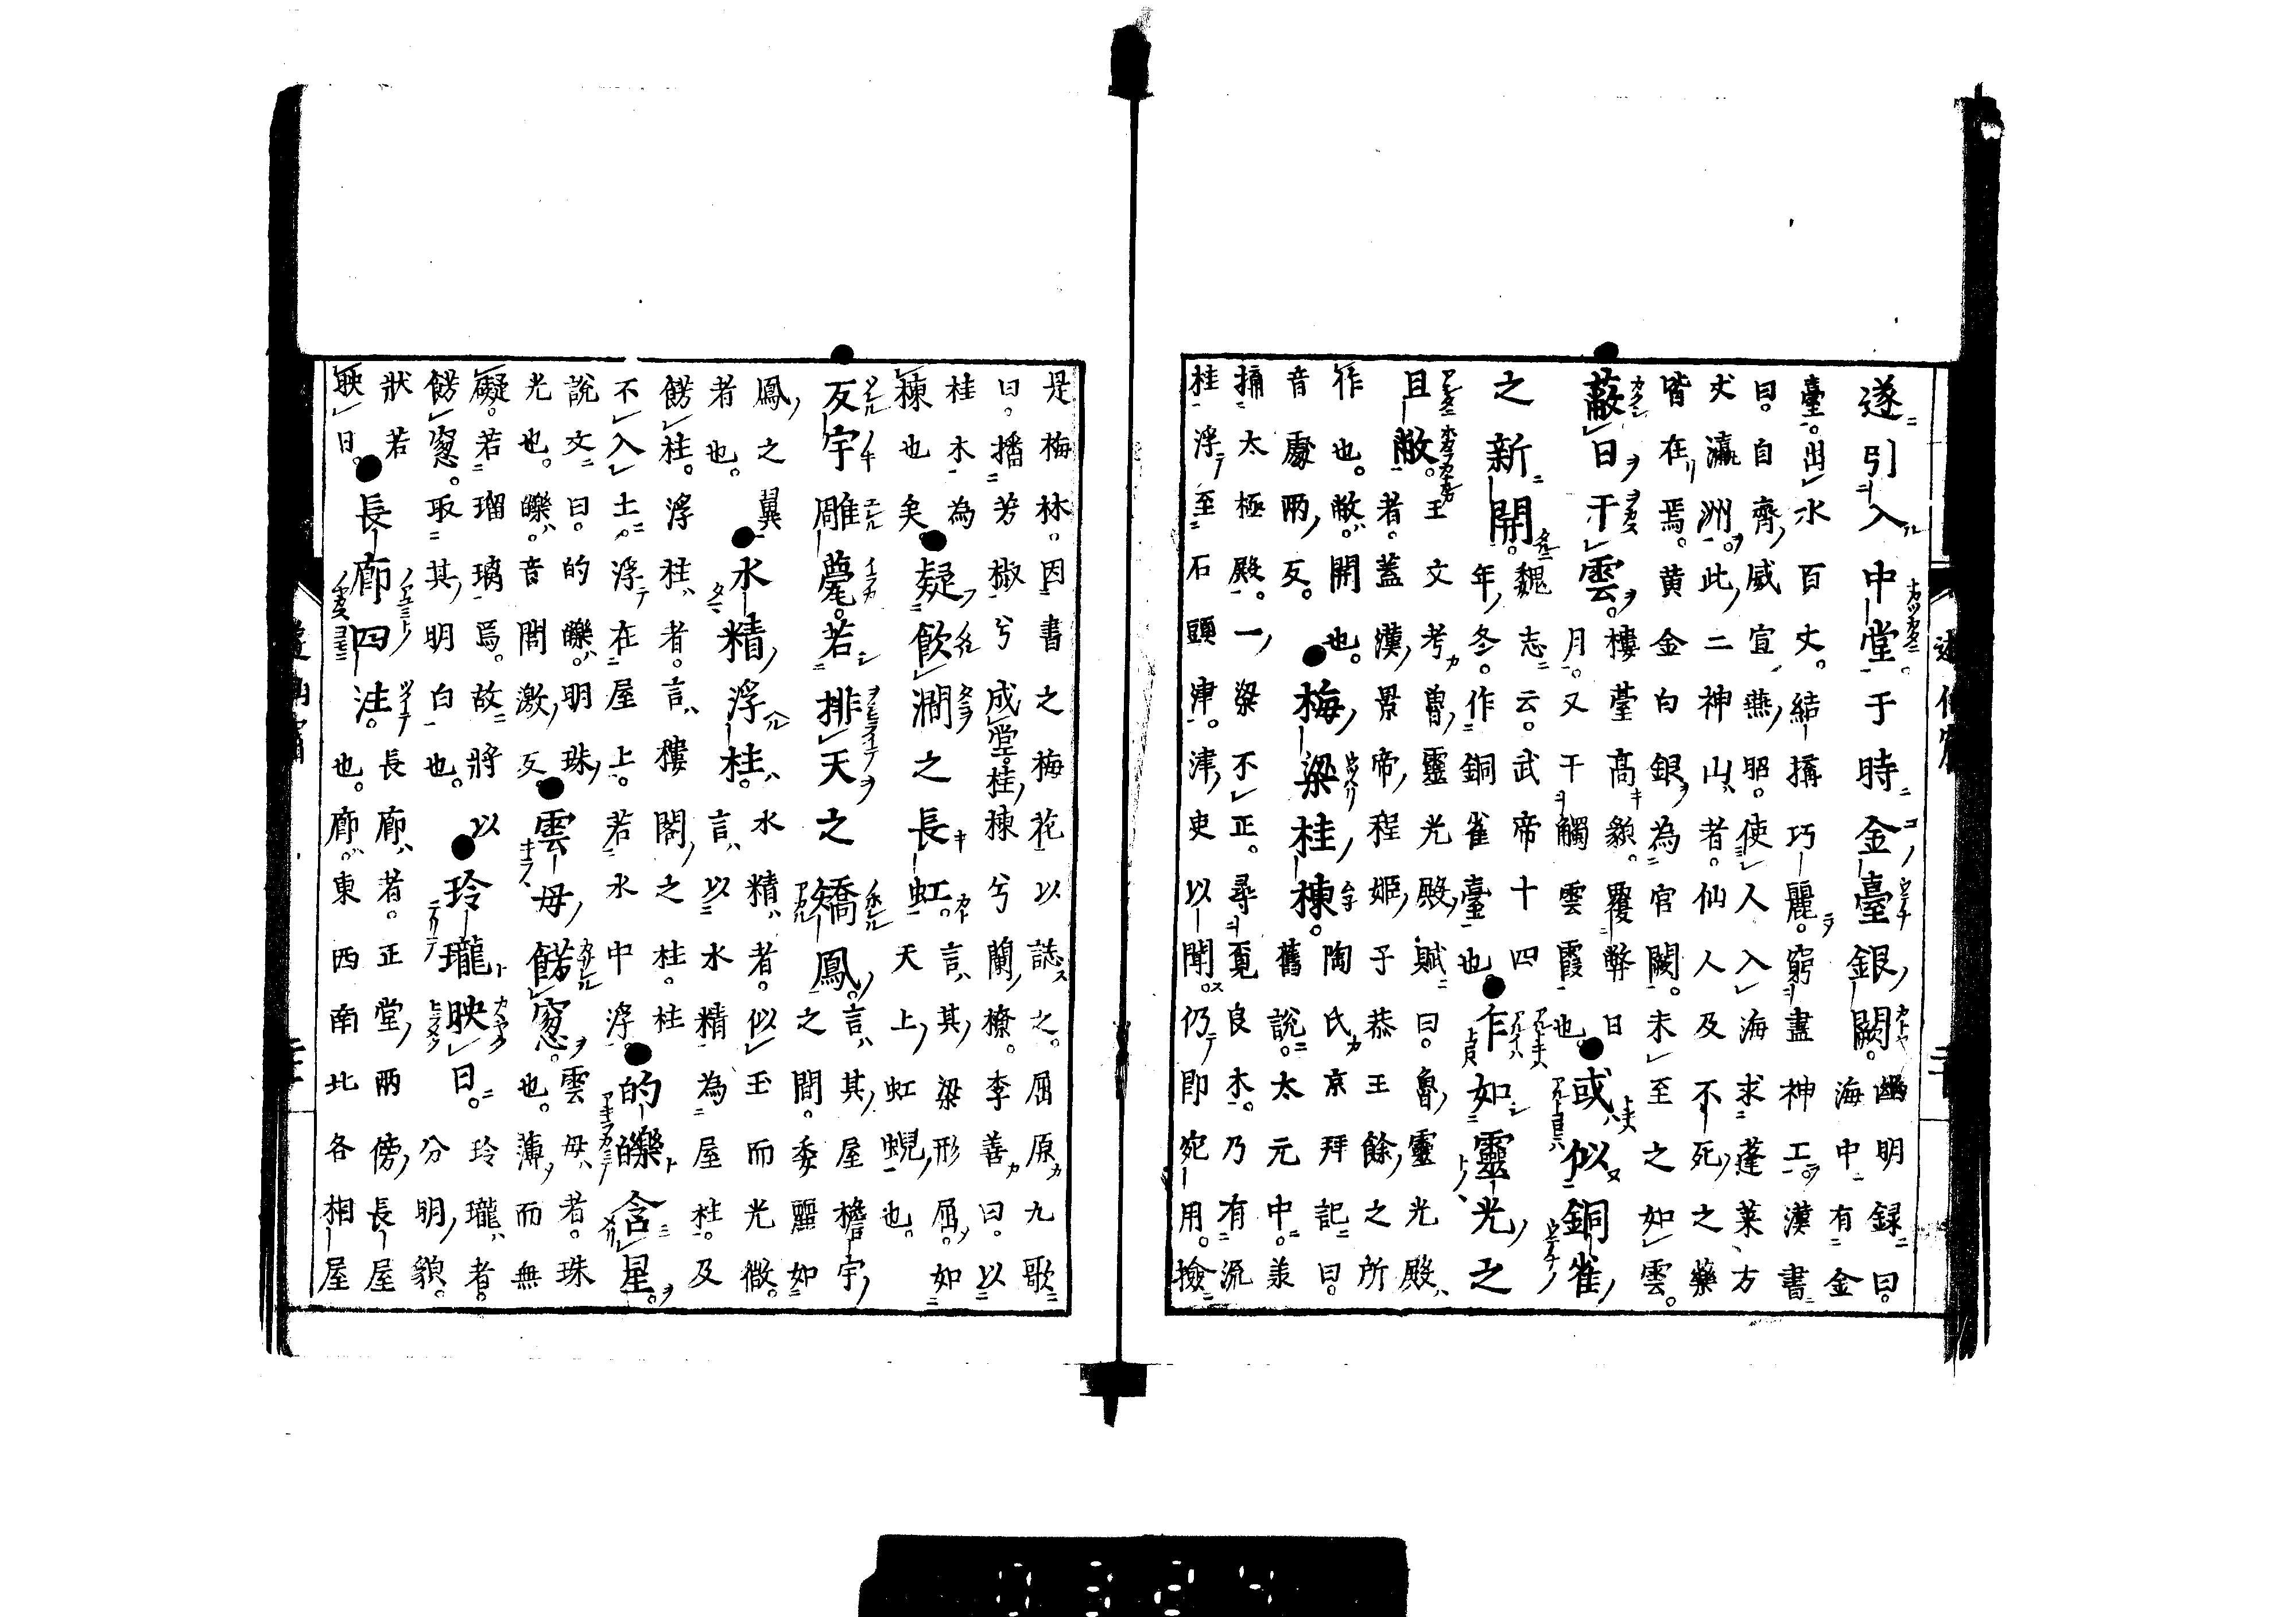 遂引入中堂于時金臺銀闕。幽明録曰。海中有金
臺。出水百丈。結搆巧麗。窮盡神工。漢書
曰。自齊威宣燕昭。使人入海求蓬萊、方
丈瀛洲。此二神山者。仙人及不死之藥
皆在焉。黄金白銀為宮闕。未至之如雲。
蔽日干雲。樓臺高貌。覆弊日月。又干觸雲霞也。或似銅雀
之新開。魏志云。武帝十四年冬。作銅雀臺也。乍如靈光之
且敞。王文考魯靈光殿賦曰。魯靈光殿者。蓋漢景帝程姬子恭王餘之所
作也。敞。開也。音處兩反。梅梁桂棟。陶氏京拜記曰。舊說。太元中。
搆太極殿。一梁不正。尋覓良木。乃有流
桂浮至石頭津。津吏以聞。仍即宛用。撿
是梅林。因書之梅花以誌之。屈原九歌
曰。播芳椒兮成堂。桂棟兮蘭橑。李善曰。以
桂木為棟也矣。疑飲澗之長虹。言其梁形屈。如天上虹蜺也。
反宇雕甍。若排天之矯鳳。言其屋檐宇之間。委麗如
鳳之翼者也。水精浮柱。水精者。似玉而光微。言以水精為屋柱。及
餝柱。浮柱者。言樓閣之柱。柱不入土。浮在屋上。若水中浮。的皪含星。
說文曰。的皪。明珠光也。皪。音閭激反。雲母餝窓。雲母者。珠也。薄而無
礙。若瑠璃焉。故將以餝窓。取其明白也。玲瓏映日。玲瓏者。分明貌。
狀若映日。長廊四注。長廊者。正堂兩傍長屋也。廊。東西南北各相屋